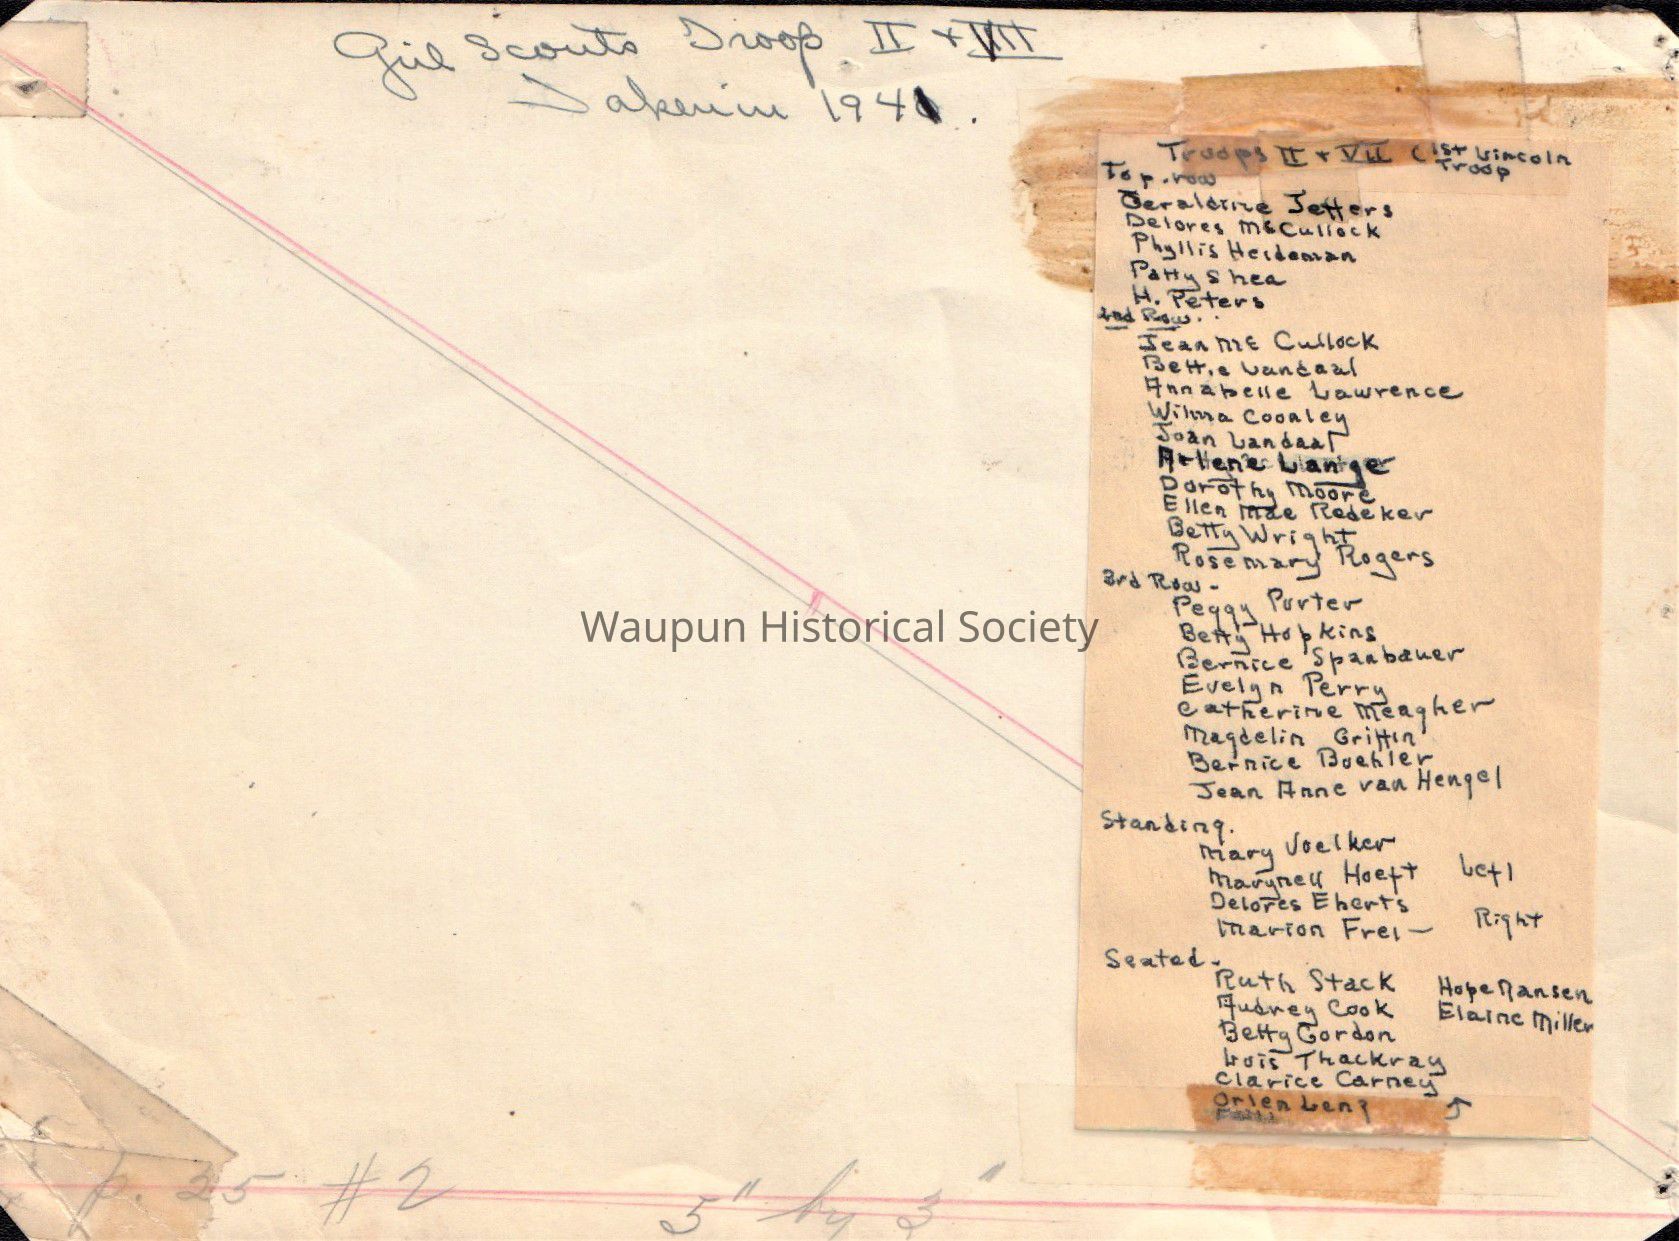 Girl Scouts Troop II + VII
Taken in 1941.
Troops II + VII (1st Lincoln
Troop
Top row
Geraldine Jeffers
Delores McCullock
Phyllis Heideman
Patty Shea
H. Peters
2nd Row.
Jean Mc Cullock
Bettie Landaal
Annabelle Lawrence
Wilma Coonley
Joan Landaal
Arlene Lange
Dorothy Moore
Ellen Mae Redeker
Betty Wright
Rosemary Rogers
3rd Row-
Peggy Porter
Betty Hopkins
Bernice Spanbauer
Evelyn Perry
Catherine Meagher
Magdelin Griffin
Bernice Buehler
Jean Anne van Hengel
Waupun Historical Society
Standing.
Mary Voelker
Marynell Hoeft Left
Delores Eberts
Marion Frei- Right
Seated-
Ruth Stack Hope Hansen
Audrey Cook Elaine Miller
Betty Gordon
Lois Thackray
Clarice Carney
Orlen
p. 25 #2 5" by 3"